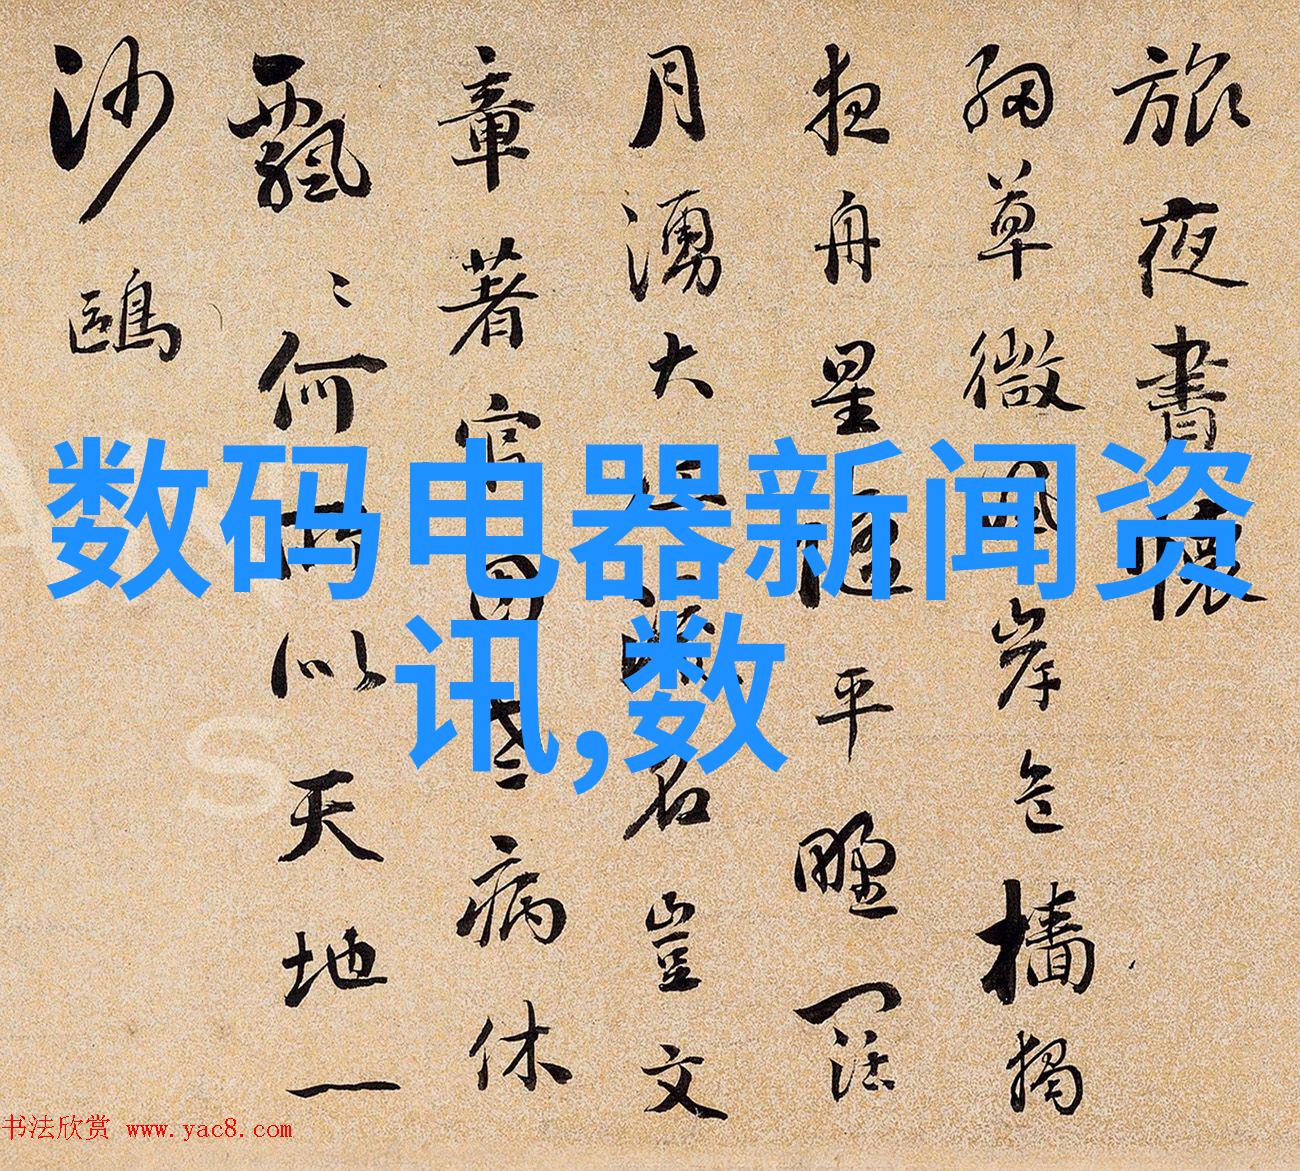 旅夜書懷
細草微風岸危檣獨
夜舟星隨平野闊
月湧大江流名豈文
章著官因老病休
飄〻何所似天地一
沙鷗
数码电器新闻资
讯,数
书法欣赏 www.yac8.com